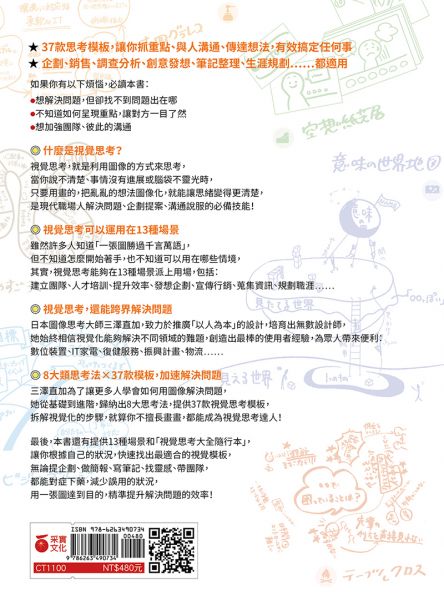 ★ 37款思考模板,讓你抓重點、與人溝通、傳達想法,有效搞定任何事
★ 企劃、銷售、調查分析、創意發想、筆記整理、生涯規劃……都適用
如果你有以下煩惱,必讀本書:
●想解決問題,但卻找不到問題出在哪
●不知道如何呈現重點,讓對方一目了然
●想加強團隊、彼此的溝通
什麼是視覺思考?
視覺思考,就是利用圖像的方式來思考,
當你說不清楚、事情沒有進展或腦袋不靈光時,
只要用畫的,把亂亂的想法圖像化,就能讓思緒變得更清楚,
是現代職場人解決問題、企劃提案、溝通說服的必備技能!
視覺思考可以運用在13種場景
雖然許多人知道「一張圖勝過千言萬語」,
但不知道怎麼開始著手,也不知道可以用在哪些情境,
其實,視覺思考能夠在13種場景派上用場,包括:
建立團隊、人才培訓、提升效率、發想企劃、宣傳行銷、蒐集資訊、規劃職涯……
視覺思考,還能跨界解決問題
日本圖像思考大師三澤直加,致力於推廣「以人為本」的設計,培育出無數設計師,
她始終相信視覺化能夠解決不同領域的難題,創造出最棒的使用者經驗,為眾人帶來便利:
數位裝置、IT家電、復健服務、振興計畫、物流……
8大類思考法×37款模板,加速解決問題
三澤直加為了讓更多人學會如何用圖像解決問題,
她從基礎到進階,歸納出8大思考法,提供37款視覺思考模板,
拆解視覺化的步驟,就算你不擅長畫畫,都能成為視覺思考達人!
最後,本書還有提供13種場景和「視覺思考大全隨行本」,
讓你根據自己的狀況,快速找出最適合的視覺模板,
無論提企劃、做簡報、寫筆記、找靈感、帶團隊,
都能對症下藥,減少誤用的狀況,
用一張圖達到目的,精準提升解決問題的效率!
意味の世界地図
見たてる世界
見える世界
テーブルクロス
采實文化
ISBN 978-6263490734
00480
9 786263 490734
CT1100 NT$480元